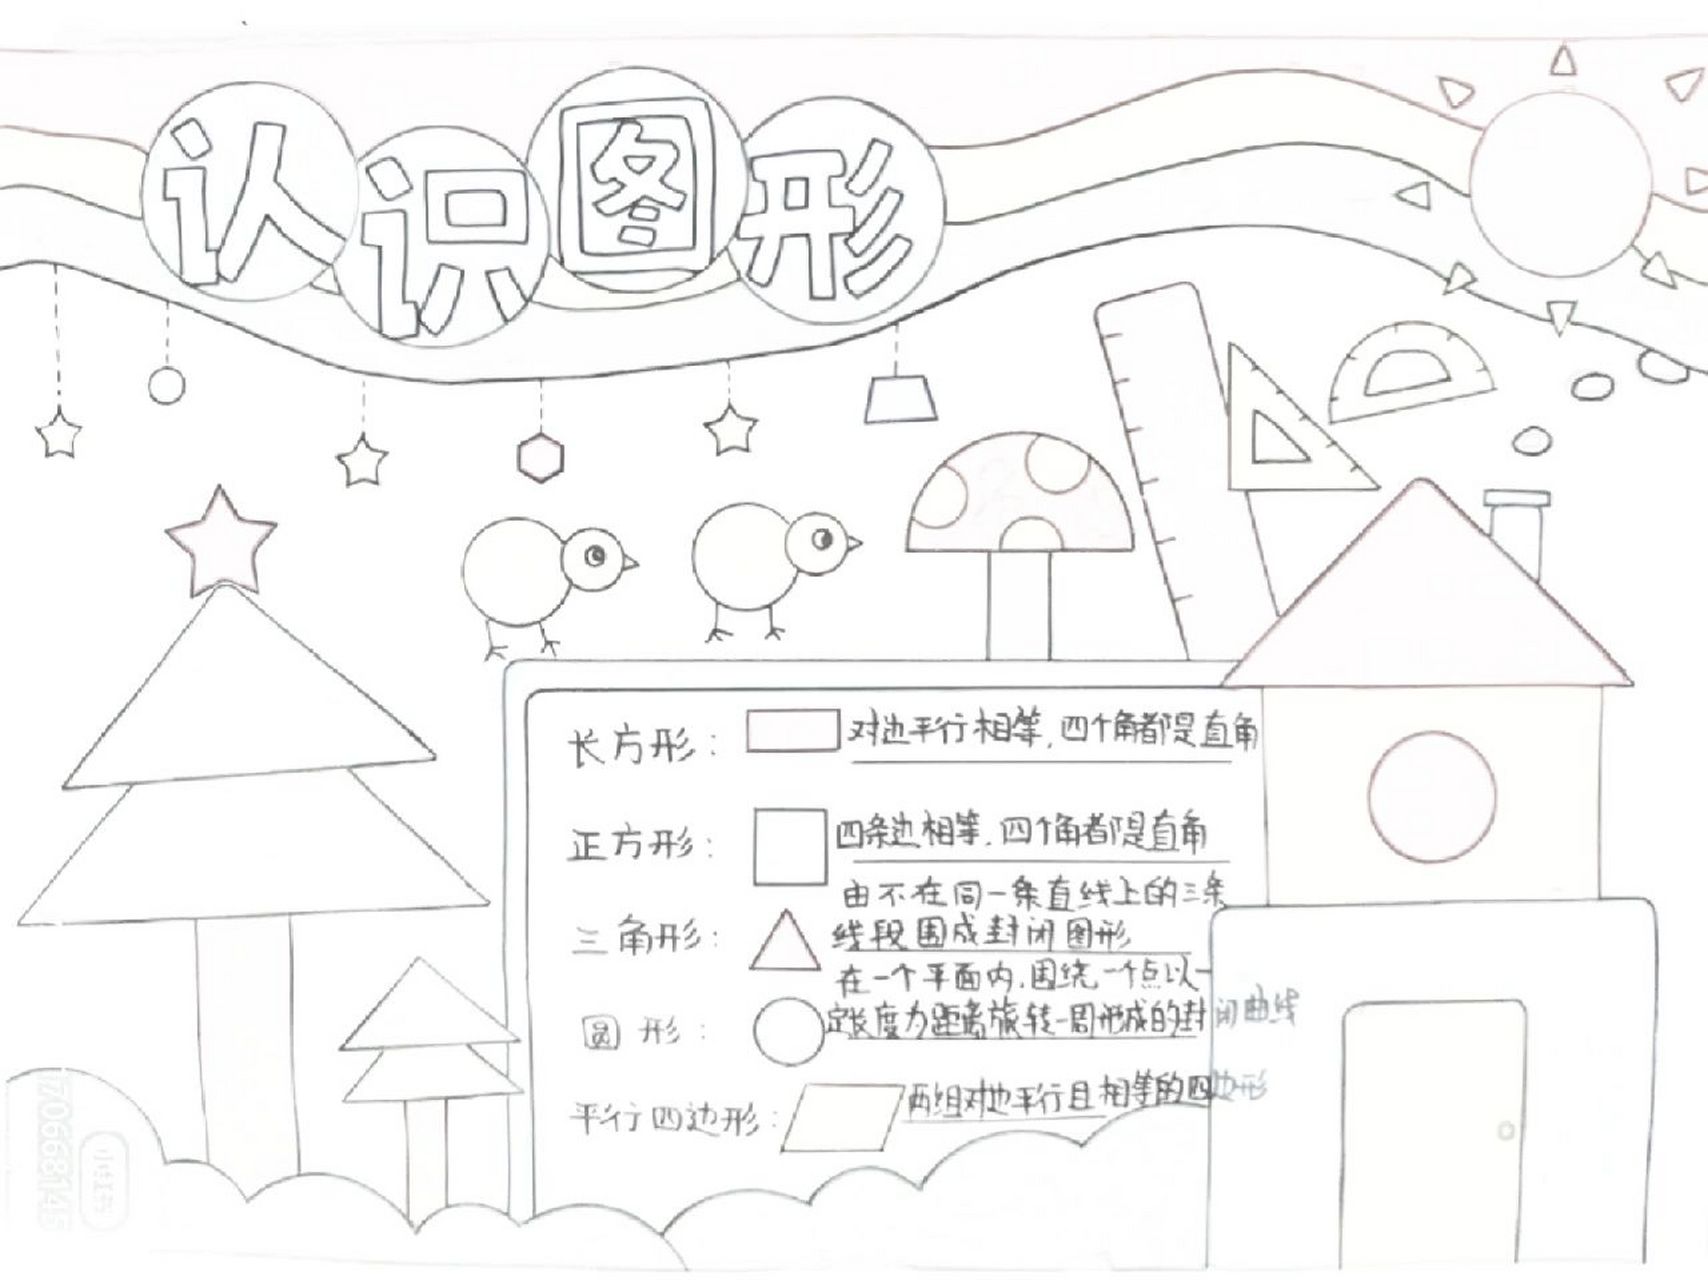 认识图形
长方形： 对边平行相等，四个角都是直角
正方形： 四条边相等，四个角都是直角
由不在同一条直线上的三条
三角形： 线段围成封闭图形
在一个平面内，围绕一个点以一
圆形： 定长度为距离旋转一周形成的封闭曲线
平行四边形： 两组对边平行且相等的四边形
小红书